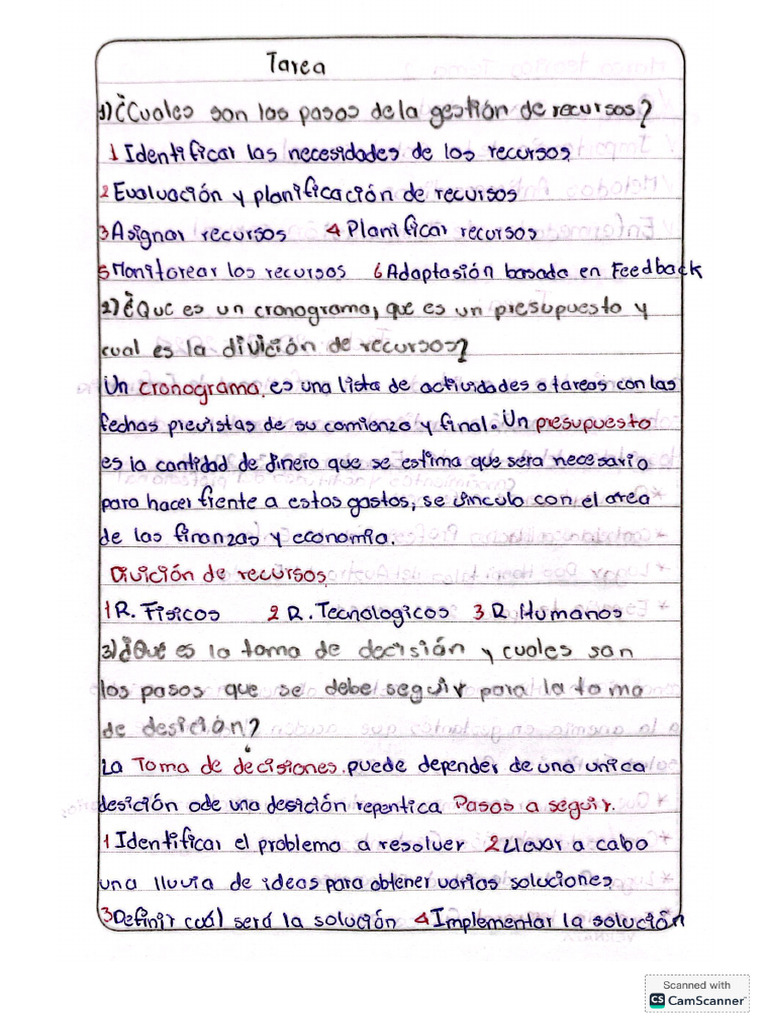 Tarea
1)¿Cuales son los pasos de la gestión de recursos?
1 Identificar las necesidades de los recursos
2 Evaluación y planificación de recursos
3 Asignar recursos 4 Planificar recursos
5 Monitorear los recursos 6 Adaptasión basada en Feedback
2)¿Que es un cronograma, que es un presupuesto y
cual es la divición de recursos?
Un cronograma, es una lista de actividades o tareas con las
fechas previstas de su comienzo y final. Un presupuesto
es la cantidad de dinero que se estima que sera necesario
para hacer fiente a estos gastos, se vinculo con el area
de las finanzas y economia.
Divición de recursos
1 R. Fisicos 2 R. Tecnologicos 3 R Humanos
3)¿Que es la toma de decisión y cuales son
los pasos que se debe seguir para la toma
de desición?
La Toma de decisiones. puede depender de una unica
desición o de una desición repentica Pasos a seguir.
1 Identificar el problema a resolver 2 Llevar a cabo
una lluvia de ideas para obtener varias soluciones
3 Definir cuál será la solución 4 Implementar la solución
Scanned with
CS CamScanner